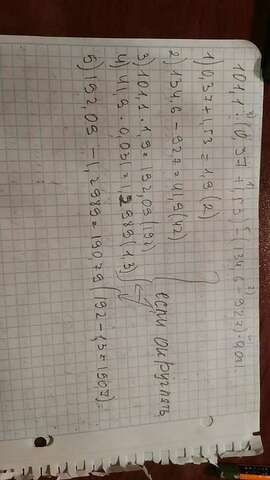 101,1 · 0,37 + 1,53 - (134,6 - 92,7) · 0,031
1) 0,37 + 1,53 = 1,9 (2)
2) 134,6 - 92,7 = 41,9 (42)
3) 101,1 · 1,9 = 192,09 (192)
4) 41,9 · 0,031 = 1,2989 (1,3)
5) 192,09 - 1,2989 = 190,79 (192 - 1,3 = 190,7)
если округлять